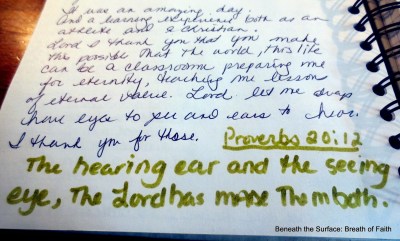 It was an amazing day.
And a learning experience both as an
athlete and a Christian.
Lord I thank you that you make
this possible that the world, this life
can be a classroom preparing me
for eternity, teaching me lessons
of eternal value. Lord let me always
have eyes to see and ears to hear.
I thank you for those. Proverbs 20:12
The hearing ear and the seeing
eye, The Lord has made Them both.
Beneath the Surface: Breath of Faith